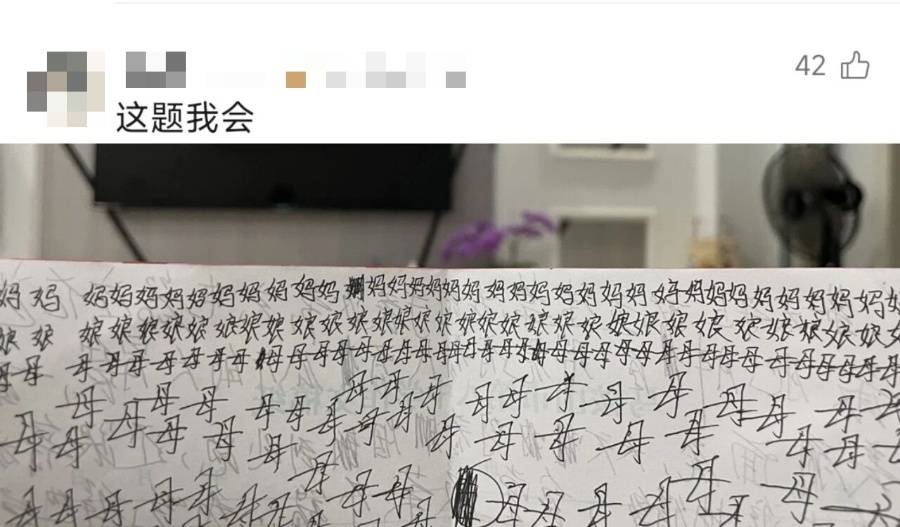 42
这题我会
妈妈 妈妈妈妈妈妈妈妈妈妈妈妈妈妈妈妈妈妈妈妈妈妈妈妈妈妈妈妈妈妈妈妈妈
娘娘 娘娘娘娘娘娘娘娘娘娘娘娘娘娘娘娘娘娘娘娘娘娘娘娘娘娘娘娘娘娘娘
母母 母母母母母母母母母母母母母母母母母母母母母母母母母母母母母母母母母
母母母母母母母母母母母母母母母母母
母母母母母母母母母母母母母母母母母
母母母母母母母母母母母母母母母母母